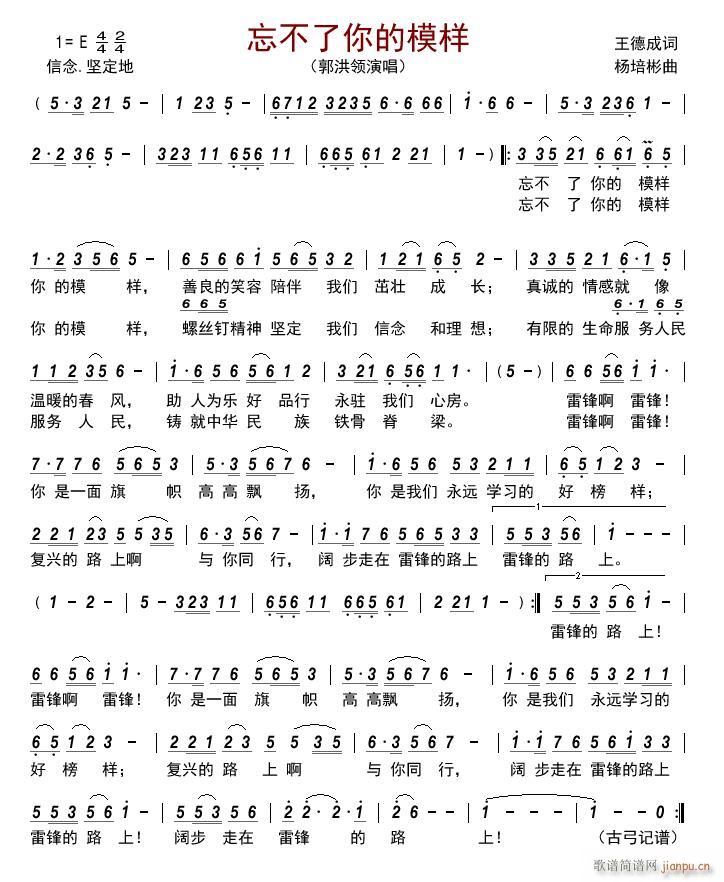 忘不了你的模样
1= E 4/4 2/4
王德成词
信念.坚定地
（郭洪领演唱）
杨培彬曲
( 5·3 21 5 - | 1 23 5 - | 6712 3235 6·6 66 | 5·3 236 1 - |
2·2 36 5 - | 323 11 656 11 | 665 61 2 21 | 1 - ) ‖: 3 35 21 6 61 6 5 |
忘不 了 你的 模样
忘不 了 你的 模样
1·2 356 5 - | 6 5 6 6 1 5 5 3 2 | 1 21 6 5 2 - | 3 3 5 21 6·1 5 |
你 的 模 样， 善良的笑容 陪伴 我们 茁壮 成 长； 真诚的 情感就 像
6 6 5
6·1 6 5
你 的 模 样， 螺丝钉精神 坚定 我们 信念 和理 想； 有限的 生命服 务人民
1 1 2 35 6 - | 1·6 5 6 5 6 1 2 | 3 21 6 56 1 1· | ( 5 - ) | 6 6 56 1 1· |
温暖的春 风， 助 人为乐 好 品行 永驻 我们 心房。 雷锋啊 雷锋！
服务 人 民， 铸 就中华 民 族 铁骨 脊 梁。 雷锋啊 雷锋！
7·7 7 6 5 6 5 3 | 5·3 5 6 7 6 | 1·6 5 6 5 3 2 1 1 | 6 5 1 2 3 - |
你 是一面 旗 帜 高 高 飘 扬， 你 是我们 永远 学习的 好 榜 样；
2 2 1 23 5 5 35 | 6·3 56 7 - | 1·1 7 6 5 6 5 3 | 5 5 3 56 | 1 - - - |
1
复兴的 路 上啊 与 你同 行， 阔 步走在 雷锋的路上 雷锋的 路 上。
( 1 - 2 - | 5 - 323 11 | 656 11 665 61 | 2 21 1 - ) :‖ 5 5 3 5 6 1 - |
2
雷锋的 路 上！
6 6 56 1 1· | 7·7 7 6 5 6 5 3 | 5·3 5 6 7 6 | 1·6 5 6 5 3 2 1 1 |
雷锋啊 雷锋！ 你 是一面 旗 帜 高 高飘 扬， 你 是我们 永远学习的
6 5 1 2 3 - | 2 2 1 2 3 5 5 35 | 6·3 5 6 7 - | 1·1 7 6 5 6 1 3 |
好 榜 样； 复兴的 路 上 啊 与 你同 行， 阔 步走在 雷锋的路上
5 5 3 5 6 1 - | 5 5 3 5 6 1 | 2 2·2 1·6 | 1 - - - | 1 - - 0 :‖
雷锋的 路 上！ 阔步 走在 雷锋 的 路 上！ （古弓记谱）
歌谱简谱网
jianpu.cn